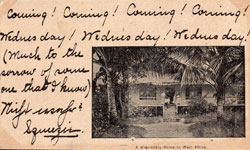 Coming! Coming! Coming! Coming!
Wednesday! Wednesday! Wednesday!
(Much to the
sorrow of some
one that I know)
A Missionary Home in West Africa.